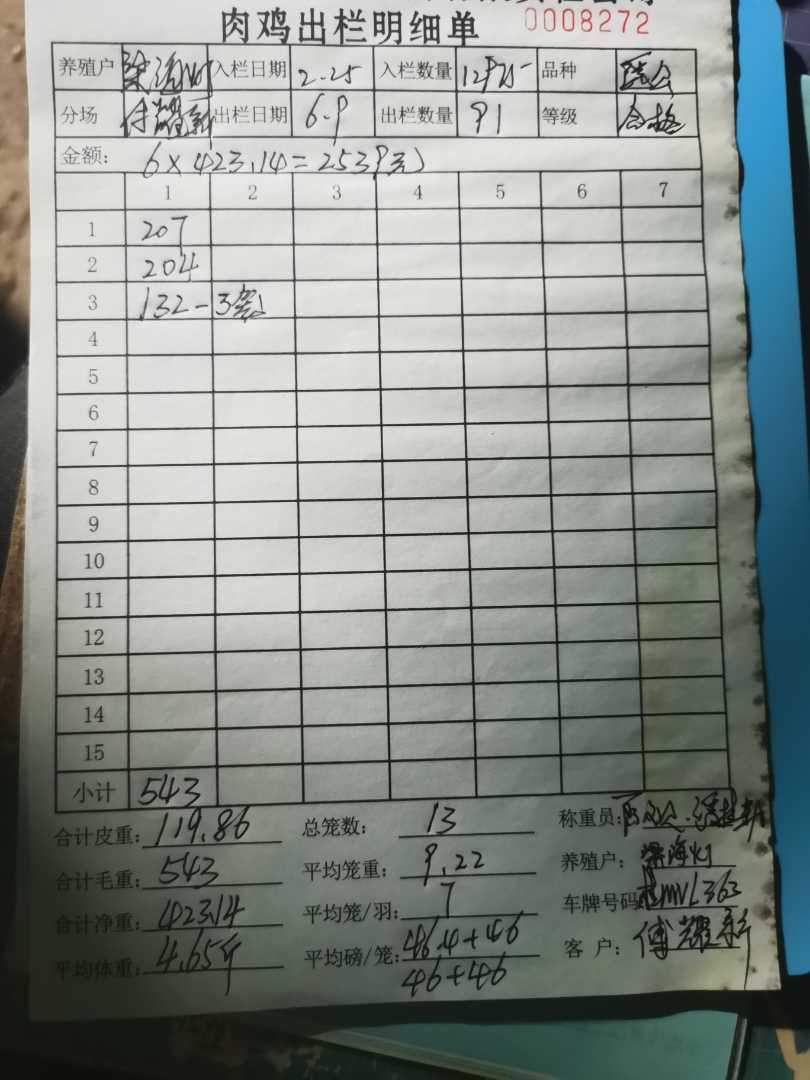 肉鸡出栏明细单 0008272
养殖户 梁海灯 入栏日期 2-25 入栏数量 品种
分场 傅耀新 出栏日期 6-9 出栏数量 91 等级 合格
金额: 6×423.14=2539元
1 2 3 4 5 6 7
1 207
2 204
3 132-3笼
4
5
6
7
8
9
10
11
12
13
14
15
小计 543
合计皮重: 119.86 总笼数: 13 称重员:
合计毛重: 543 平均笼重: 9.22 养殖户: 梁海灯
合计净重: 423.14 平均笼/羽: 7 车牌号码
平均体重: 4.65斤 平均磅/笼: 46.4+46 客 户: 傅耀新
46+46